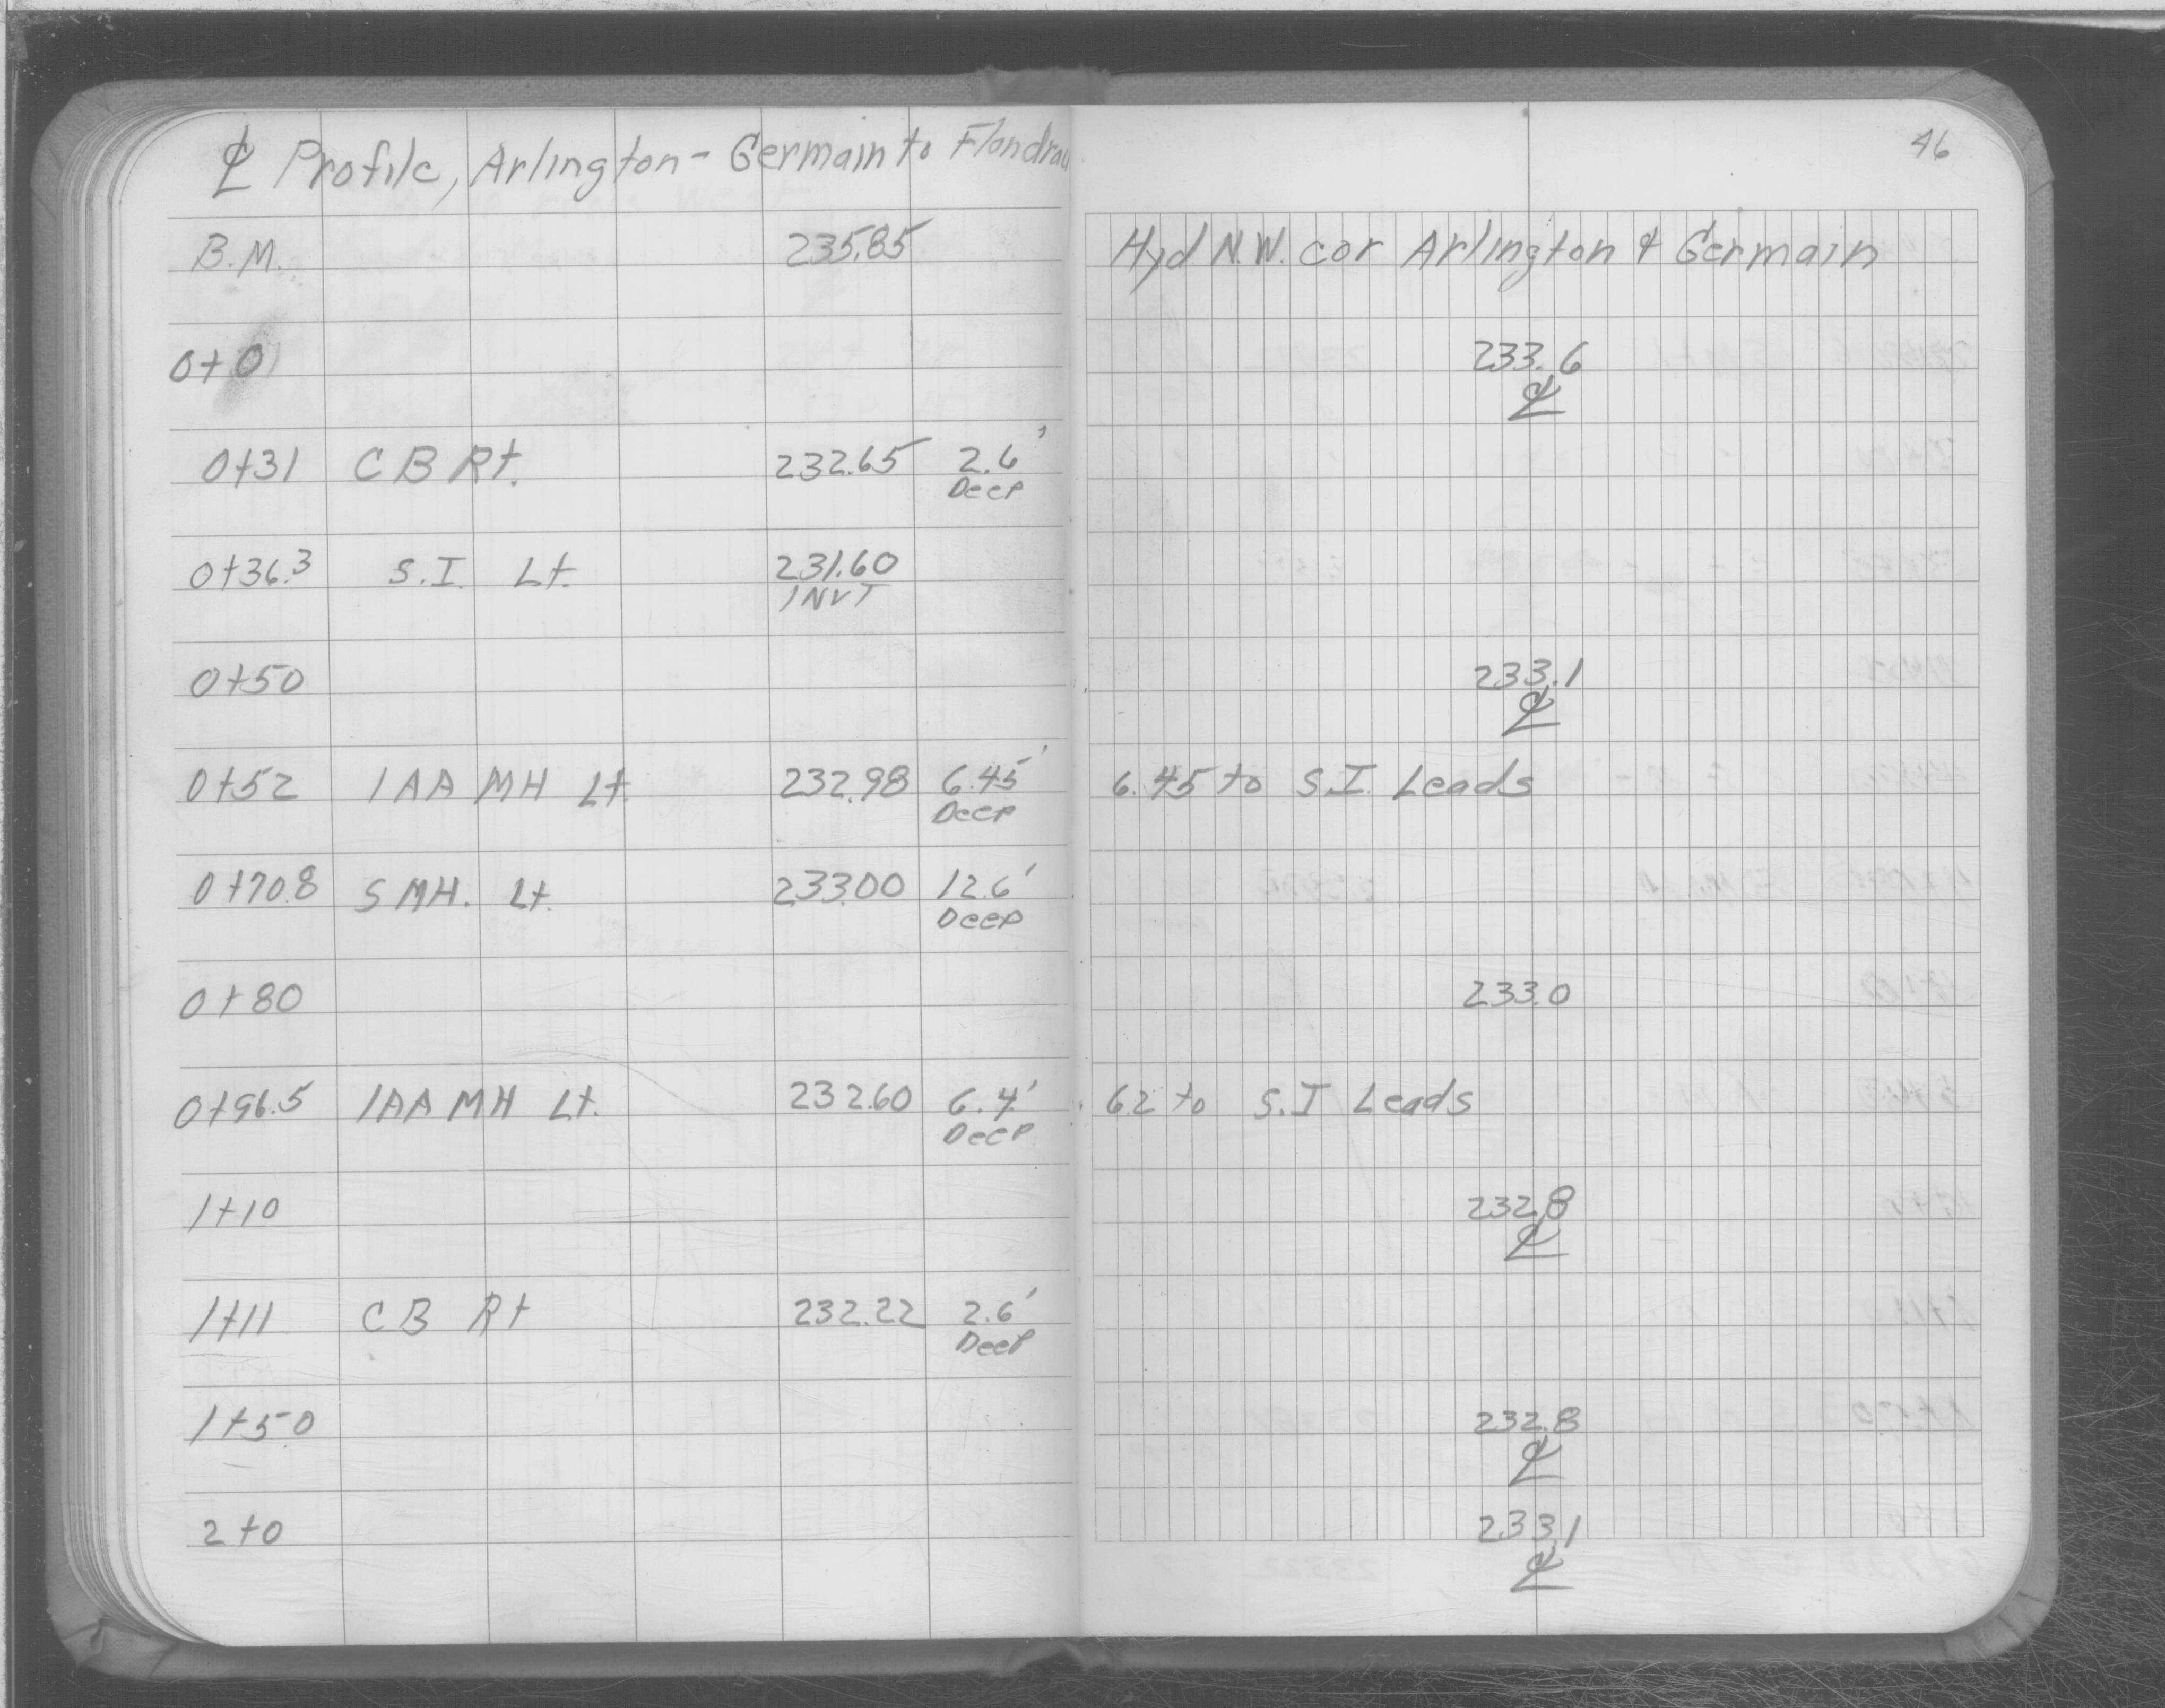 ℄ Profile, Arlington - Germain to Flandrau
46
B.M. 235.85 Hyd N.W. cor Arlington & Germain
0+0 233.6
℄
0+31 CB Rt. 232.65 2.6'
Deep
0+36.3 S.I. Lt. 231.60
INVT
0+50 233.1
℄
0+52 1AA MH Lt. 232.98 6.45' 6.45 to S.I. Leads
Deep
0+70.8 S MH. Lt. 233.00 12.6'
Deep
0+80 233.0
0+96.5 1AA MH Lt. 232.60 6.4' 6.2 to S.I Leads
Deep
1+10 232.8
℄
1+11 CB Rt 232.22 2.6'
Deep
1+50 232.8
℄
2+0 233.1
℄